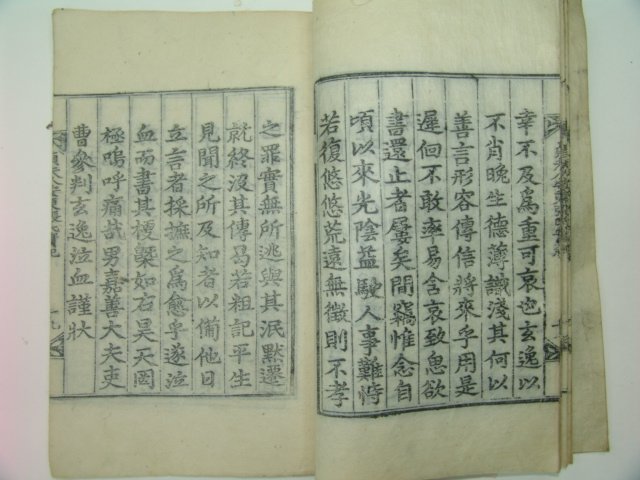 幸不及爲重可哀也玄逸以
不肖晩生德薄識淺其何以
善言形容傳信將來乎用是
遲佪不敢率易含哀致思欲
書還止者屢矣間竊惟念自
頃以來光陰益駛人事難恃
若復悠悠荒遠無徵則不孝
之罪實無所逃與其泯默遷
就終沒其傳曷若粗記平生
見聞之所及知者以備他日
立言者採摭之爲愈乎遂泣
血而書其梗槩如右昊天罔
極嗚呼痛哉男嘉善大夫吏
曹參判玄逸泣血謹狀
十九